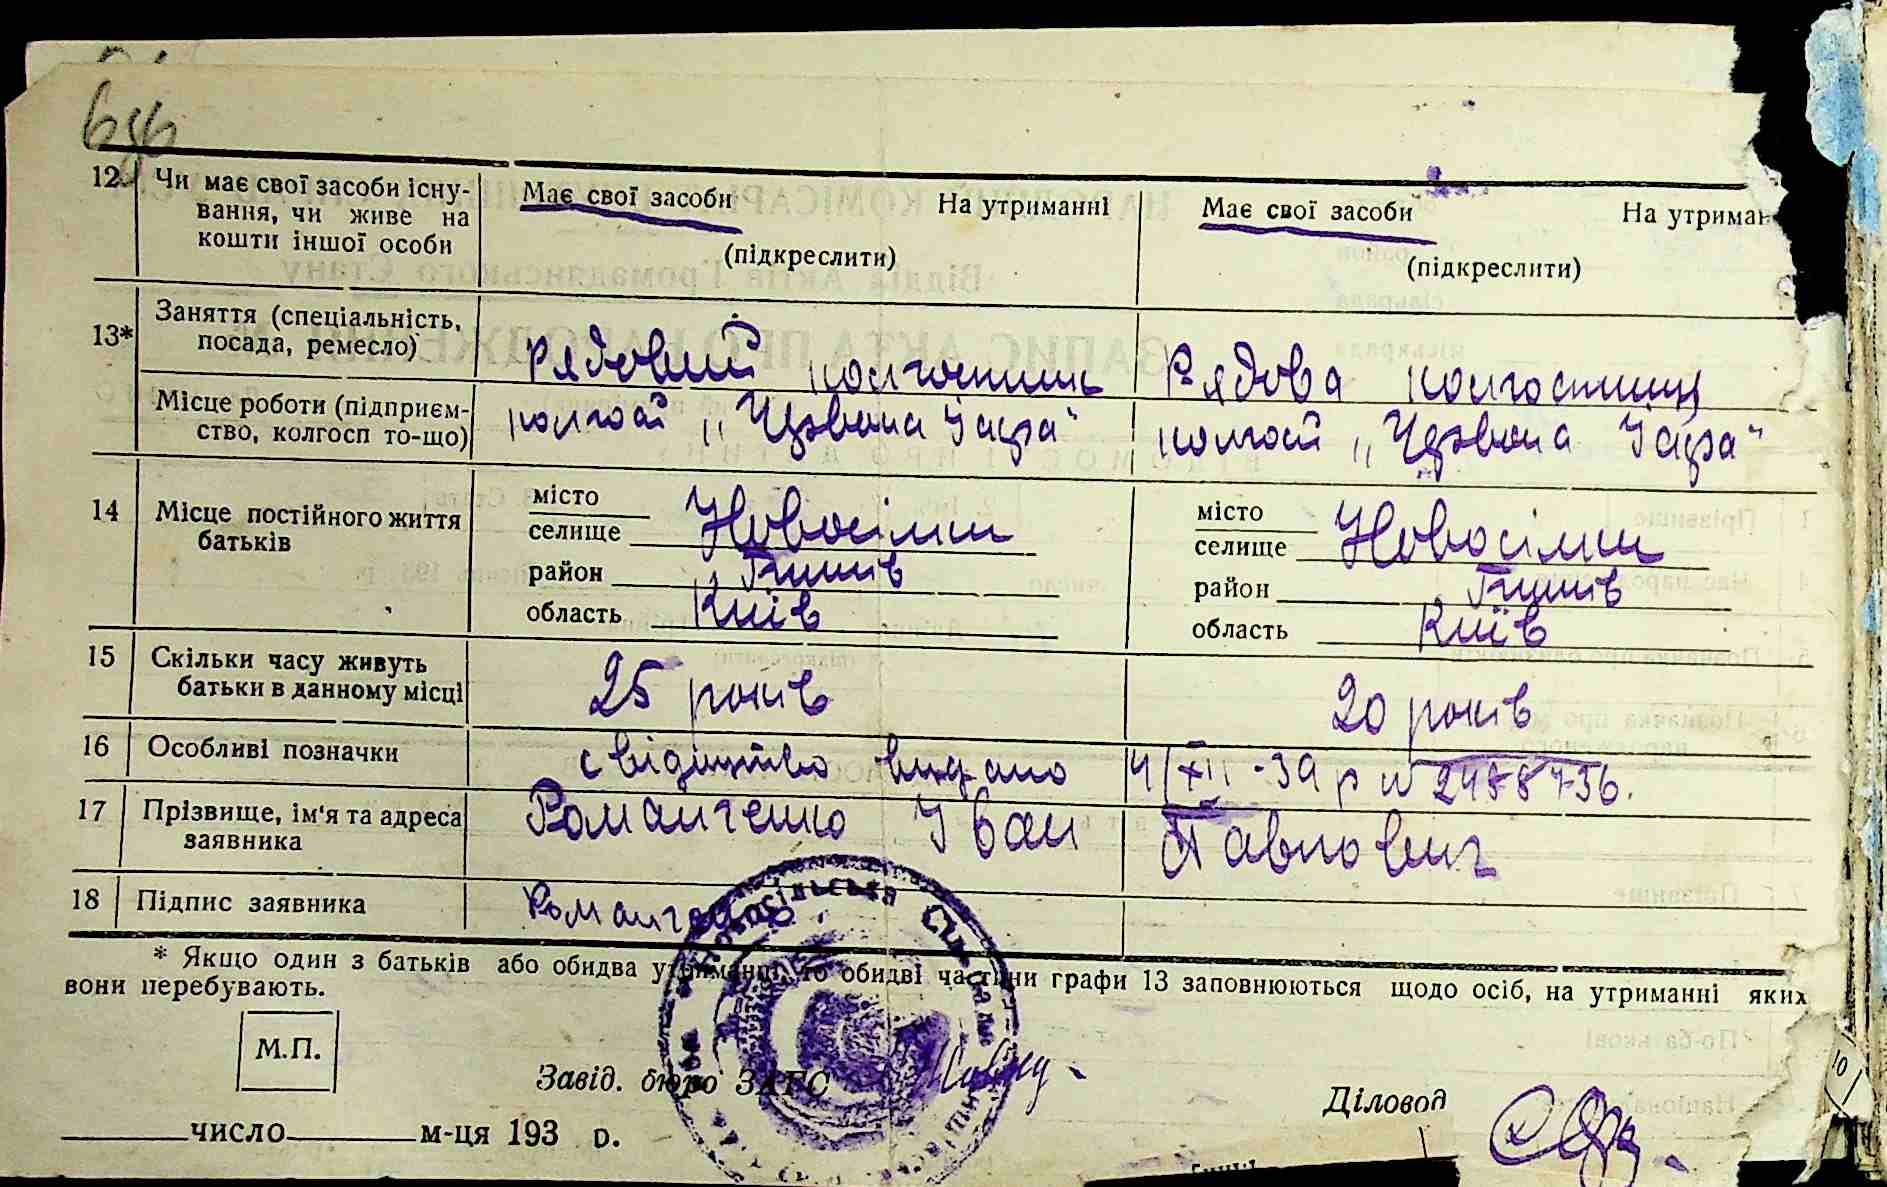 12. Чи має свої засоби існу-
вання, чи живе на
кошти іншої особи
Має свої засоби На утриманні
(підкреслити)
Має свої засоби На утриман
(підкреслити)
13* Заняття (спеціальність,
посада, ремесло)
Рядовий колгоспник
Рядова колгоспниця
Місце роботи (підприєм-
ство, колгосп то-що)
колгосп „Червона Заря"
колгосп „Червона Заря"
14 Місце постійного життя
батьків
місто
селище Новосілки
район
область Київ
місто
селище Новосілки
район
область Київ
15 Скільки часу живуть
батьки в данному місці
25 років
20 років
16 Особливі позначки
свідоцтво видано
17 Прізвище, ім'я та адреса
заявника
Романченко Іван Павлович
18 Підпис заявника
Романченко
* Якщо один з батьків або обидва утриманці, то обидві частини графи 13 заповнюються щодо осіб, на утриманні яких
вони перебувають.
М.П.
Завід. бюро ЗАГС
Діловод
число м-ця 193 р.